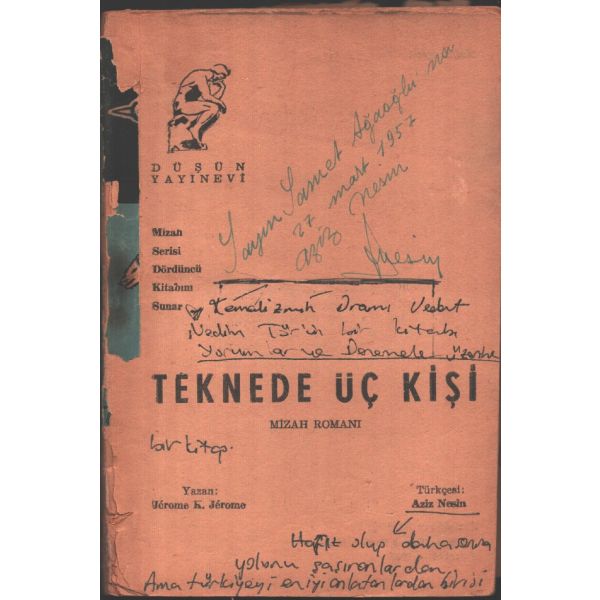 DÜŞÜN
YAYINEVİ
Sayın Samet Ağaoğlu'na
27 mart 1957
aziz nesin
Mizah
Serisi
Dördüncü
Kitabını
Sunar
Kemalizmin Dramı Vedat
Nedim Tür'ün bir kitabı
Yorumlar ve Denemeler üzerine
TEKNEDE ÜÇ KİŞİ
MİZAH ROMANI
bir kitap.
Yazan:
Jérome K. Jérome
Türkçesi:
Aziz Nesin
Hafız olup daha sonra
yolunu şaşıranlardan
Ama türkiyeyi en iyi anlatanlardan birisi